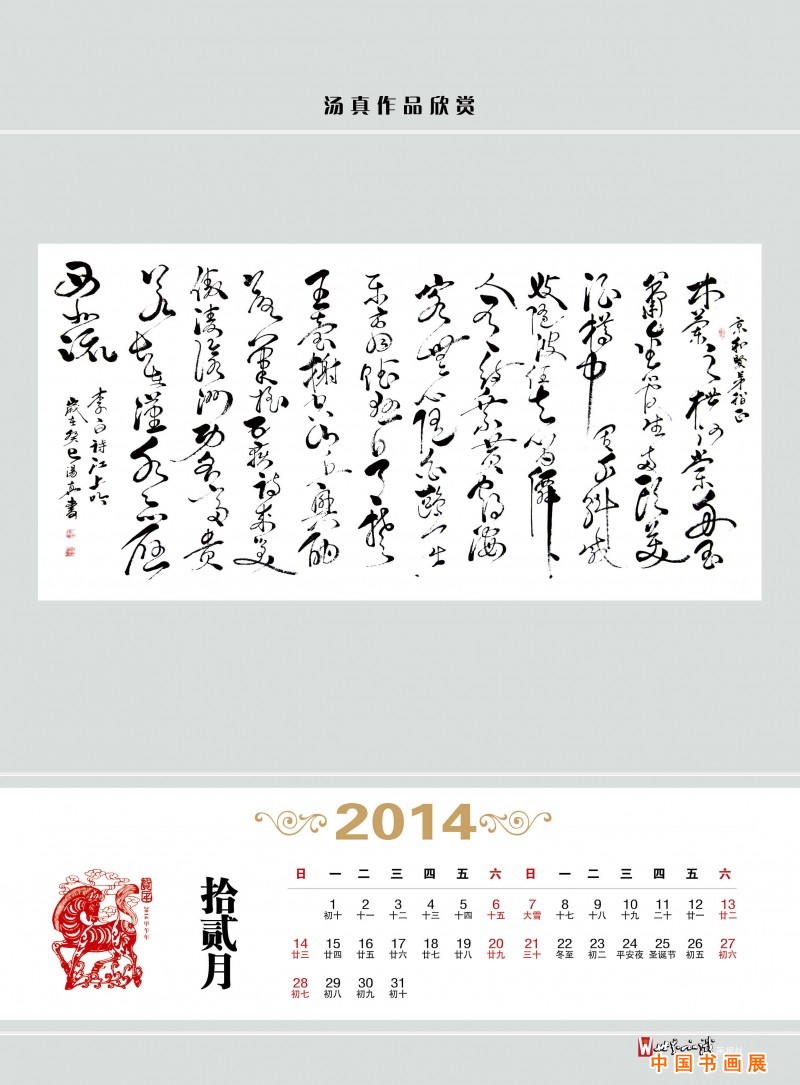 汤真作品欣赏
京和贤弟指正
木兰之枻沙棠舟玉
箫金管坐两头美
酒樽中置千斛载
妓随波任去留仙
人有待乘黄鹤海
客無心随白鸥屈
平词赋悬日月楚
王臺榭空山丘興酣
落筆摇五嶽詩成笑
傲凌滄洲功名富贵
若长在漢水亦應
西北流
李白诗江上吟
歲在癸巳湯真書
2014
拾贰月
2014 甲午年
日 一 二 三 四 五 六 日 一 二 三 四 五 六
1 2 3 4 5 6 7 8 9 10 11 12 13
初十 十一 十二 十三 十四 十五 大雪 十七 十八 十九 二十 廿一 廿二
14 15 16 17 18 19 20 21 22 23 24 25 26 27
廿三 廿四 廿五 廿六 廿七 廿八 廿九 三十 冬至 初二 平安夜 圣诞节 初五 初六
28 29 30 31
初七 初八 初九 初十
中国书画展